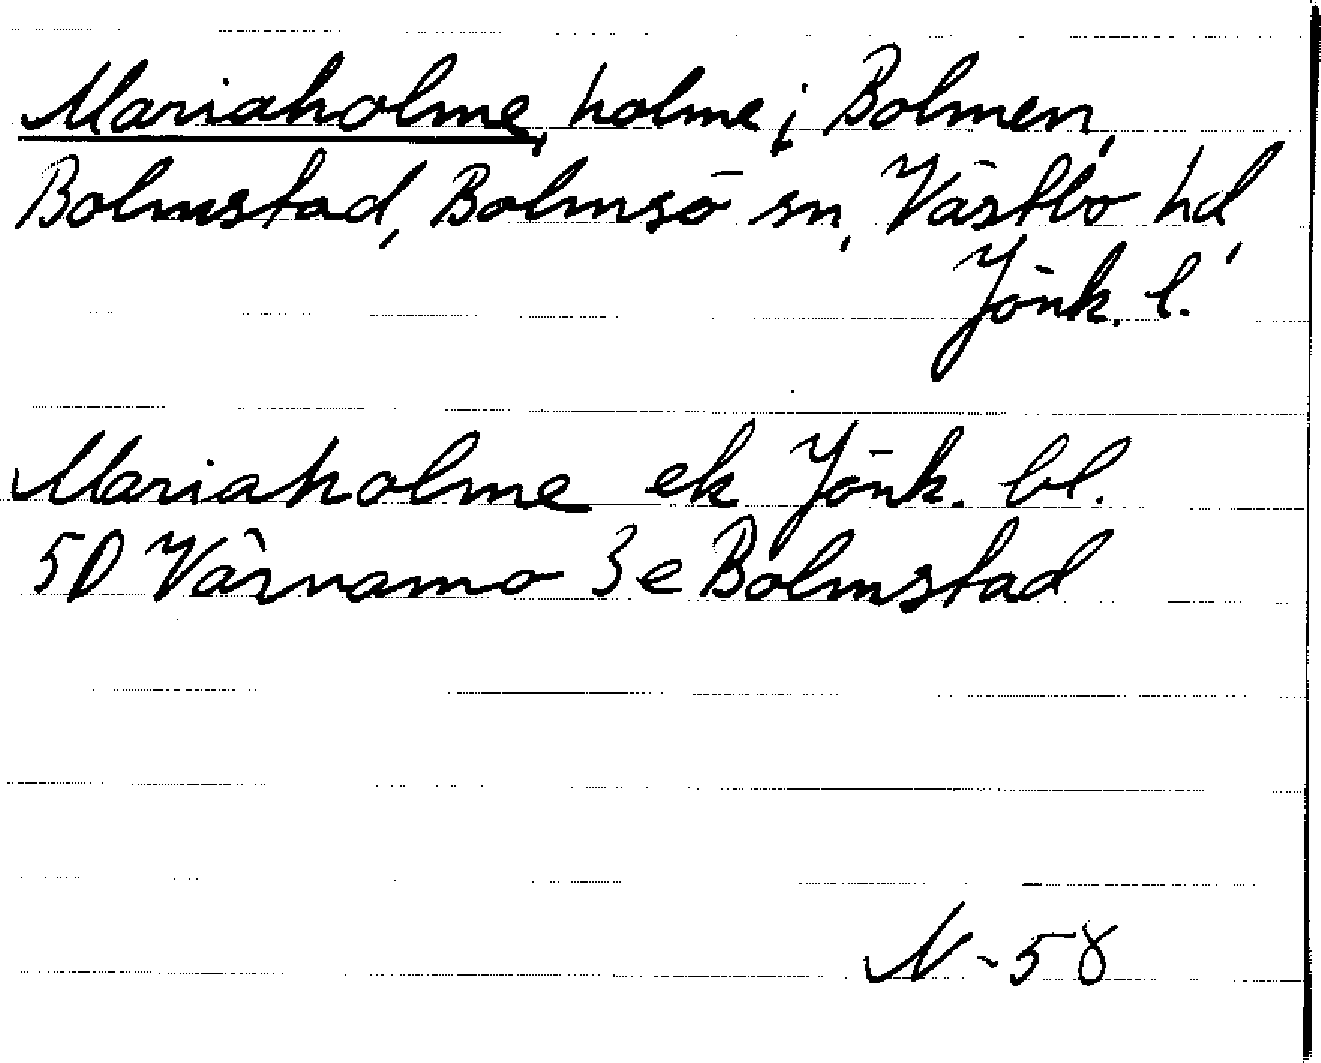 Mariaholme, holme i Bolmen,
Bolmstad, Bolmsö sn, Västbo hd,
Jönk. l.
Mariaholme ek Jönk. bl.
5D Värnamo 3e Bolmstad
N-58